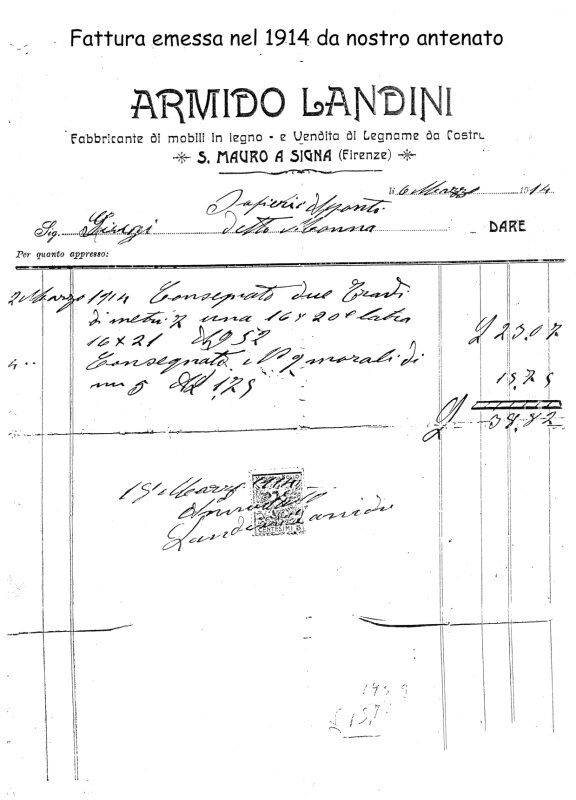 Fattura emessa nel 1914 da nostro antenato
ARMIDO LANDINI
Fabbricante di mobili in legno - e Vendita di Legname da Costru
S. MAURO A SIGNA (Firenze)
li 6 Marzo 1914
Sig. detto DARE
Per quanto appresso:
2 Marzo 1914 Consegnato due Travi
di metri 7 una 16 x 20 e l'altra
16 x 21 £ 23.07
4 " Consegnato N° 9 morali di
m 5 15.75
£ 38.82
19 Marzo 1914
CENTESIMI 5
Landini Armido